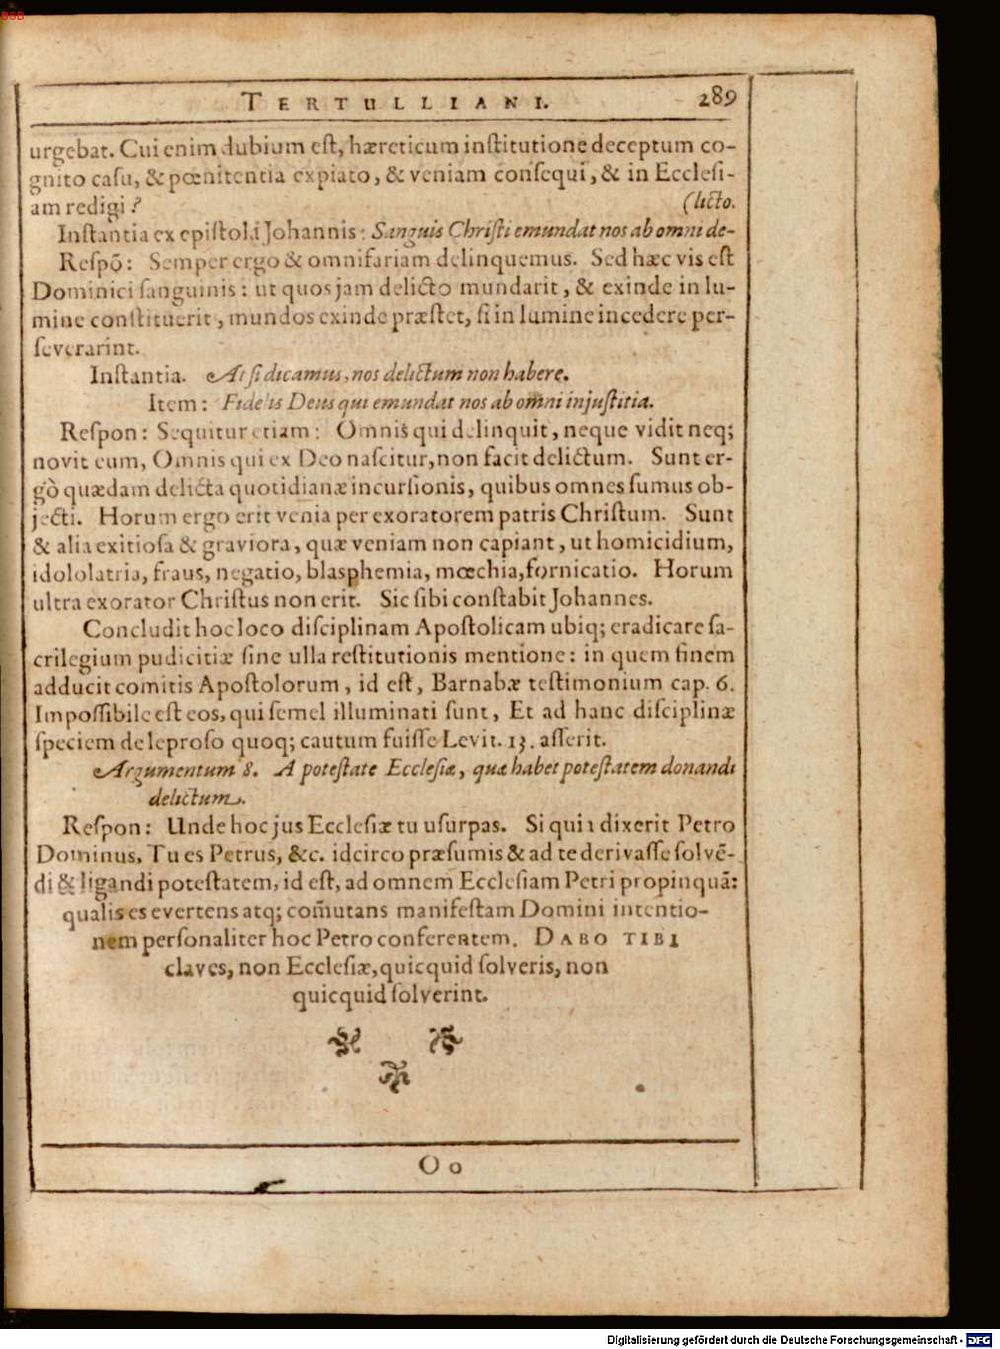 BSB
TERTULLIANI. 289
urgebat. Cui enim dubium eſt, hæreticum inſtitutione deceptum co-
gnito caſu, & pœnitentia expiato, & veniam conſequi, & in Eccleſi-
am redigi? (licto.
Inſtantia ex epiſtola Johannis: Sanguis Chriſti emundat nos ab omni de-
Reſpō: Semper ergo & omnifariam delinquemus. Sed hæc vis eſt
Dominici ſanguinis: ut quos jam delicto mundarit, & exinde in lu-
mine conſtituerit, mundos exinde præſtet, ſi in lumine incedere per-
ſeverarint.
Inſtantia. At ſi dicamus, nos delictum non habere.
Item: Fidelis Deus qui emundat nos ab omni injuſtitia.
Reſpon: Sequitur etiam: Omnis qui delinquit, neque vidit neq;
novit eum, Omnis qui ex Deo naſcitur, non facit delictum. Sunt er-
gò quædam delicta quotidianæ incurſionis, quibus omnes ſumus ob-
jecti. Horum ergo erit venia per exoratorem patris Chriſtum. Sunt
& alia exitioſa & graviora, quæ veniam non capiant, ut homicidium,
idololatria, fraus, negatio, blasphemia, mœchia, fornicatio. Horum
ultra exorator Chriſtus non erit. Sic ſibi conſtabit Johannes.
Concludit hoc loco diſciplinam Apoſtolicam ubiq; eradicare ſa-
crilegium pudicitiæ ſine ulla reſtitutionis mentione: in quem finem
adducit comitis Apoſtolorum, id eſt, Barnabæ teſtimonium cap. 6.
Impoſſibile eſt eos, qui ſemel illuminati ſunt, Et ad hanc diſciplinæ
ſpeciem de leproſo quoq; cautum fuiſſe Levit. 13. aſſerit.
Argumentum 8. A poteſtate Eccleſiæ, quæ habet poteſtatem donandi
delictum.
Reſpon: Unde hoc jus Eccleſiæ tu uſurpas. Si quia dixerit Petro
Dominus, Tu es Petrus, &c. idcirco præſumis & ad te derivaſſe ſolvē-
di & ligandi poteſtatem, id eſt, ad omnem Eccleſiam Petri propinquā:
qualis es evertens atq; com̄utans manifeſtam Domini intentio-
nem perſonaliter hoc Petro conferentem. DABO TIBI
claves, non Eccleſiæ, quicquid ſolveris, non
quicquid ſolverint.
Oo
Digitalisierung gefördert durch die Deutsche Forschungsgemeinschaft - DFG